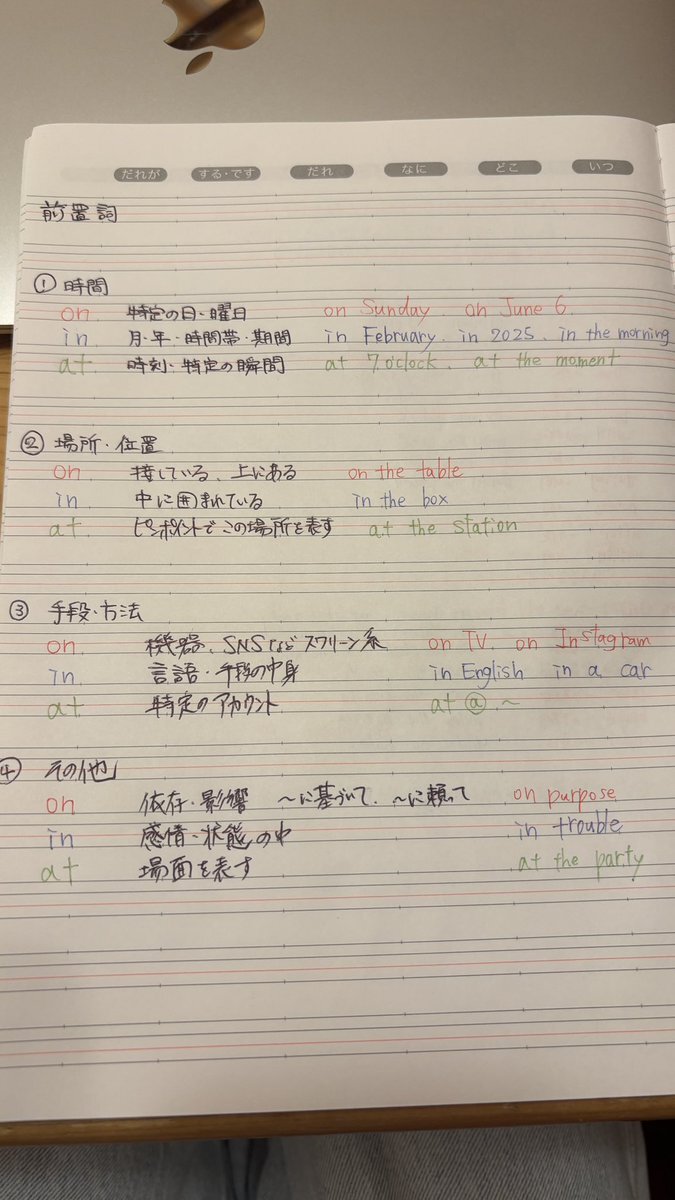 だれが する・です だれ なに どこ いつ
前置詞
① 時間
on 特定の日・曜日 on Sunday. on June 6.
in 月・年・時間帯・期間 in February. in 2025、in the morning
at 時刻・特定の瞬間 at 7 o'clock. at the moment
② 場所・位置
on 接している、上にある on the table
in 中に囲まれている in the box
at ピンポイントでこの場所を表す at the station
③ 手段・方法
on 機器、SNSなどスクリーン系 on TV. on Instagram
in 言語・手段の中身 in English in a car
at 特定のアカウント at @ ~
④ その他
on 依存・影響 ~に基づいて、~に頼って on purpose
in 感情・状態の中 in trouble
at 場面を表す at the party